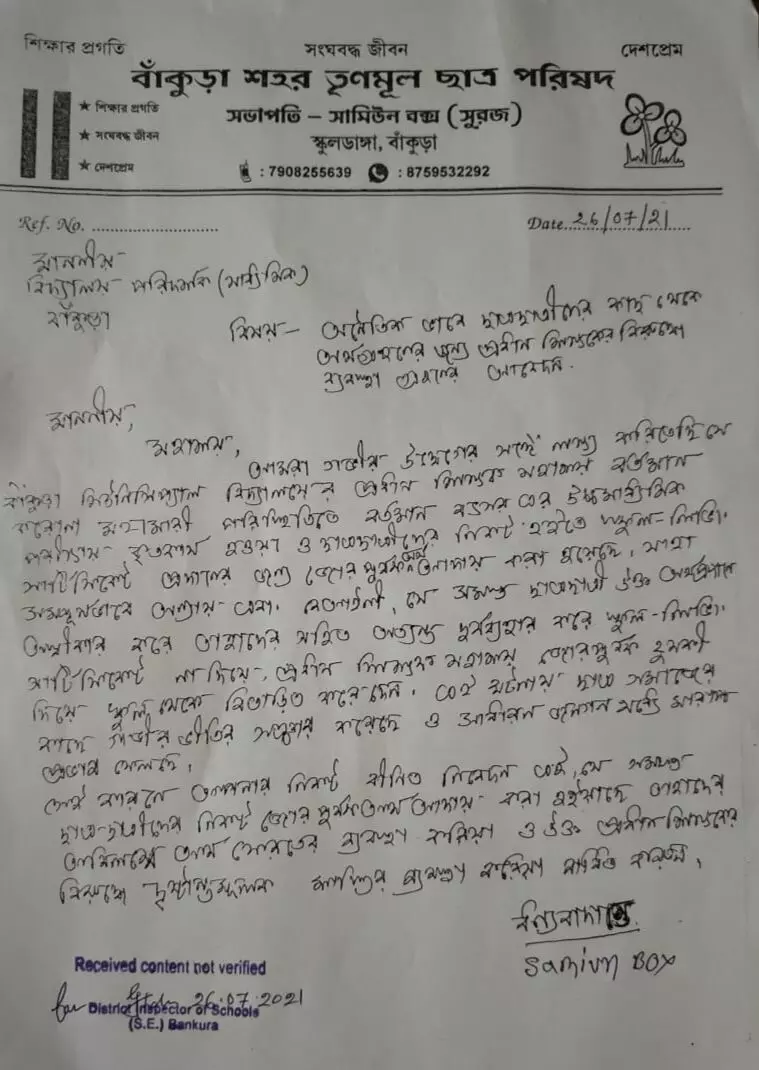 শিক্ষার প্রগতি সংঘবদ্ধ জীবন দেশপ্রেম
বাঁকুড়া শহর তৃণমূল ছাত্র পরিষদ
★ শিক্ষার প্রগতি
★ সংঘবদ্ধ জীবন
★ দেশপ্রেম
সভাপতি – সামিউন বক্স (সুরজ)
স্কুলডাঙ্গা, বাঁকুড়া
: 7908255639 : 8759532292
Ref. No. ............................
Date..26/07/21......
মাননীয়
বিদ্যালয় পরিদর্শক (মাধ্যমিক)
বাঁকুড়া
বিষয় – অনৈতিক ভাবে ছাত্রছাত্রীদের কাছ থেকে
অর্থগ্রহণের জন্য প্রধান শিক্ষকের বিরুদ্ধে
ব্যবস্থা গ্রহণের আবেদন.
মাননীয়,
মহাশয়,
আমরা গভীর উদ্বেগের সঙ্গে লক্ষ্য করিতেছি যে
বাঁকুড়া মিউনিসিপ্যাল বিদ্যালয়ের প্রধান শিক্ষক মহাশয় বর্তমান
করোনা মহামারী পরিস্থিতিতে বর্তমান বৎসর এর উচ্চমাধ্যমিক
পরীক্ষায় হওয়া ও ছাত্রছাত্রীদের নিকট হইতে স্কুল-লিভিং
সার্টিফিকেট প্রদানের জন্য জোর পূর্বক অর্থ আদায় করা হয়েছে, যাহা
অন্যায় এবং বেআইনী, যে সমস্ত ছাত্রছাত্রী উক্ত অর্থপ্রদানে
অস্বীকার করে তাহাদের সহিত অত্যন্ত দুর্ব্যবহার করে স্কুল-লিভিং
সার্টিফিকেট না দিয়ে, প্রধান শিক্ষক মহাশয় জোরপূর্বক হুমকী
দিয়ে স্কুল থেকে বিতাড়িত করে দেন. এই ঘটনায় ছাত্র সমাজের
কাছে গভীর ভীতির সঞ্চার করেছে ও সাধারন জনগন মধ্যে মারাত্মক
প্রভাব ফেলছে.
সেই কারনে আপনার নিকট নিবেদন এই, যে সমস্ত
ছাত্র-ছাত্রীদের নিকট জোর পূর্বক অর্থ আদায় করা হইয়াছে তাহাদের
অবিলম্বে অর্থ ফেরতের ব্যবস্থা করিয়া ও উক্ত প্রধান শিক্ষকের
বিরুদ্ধে দৃষ্টান্তমূলক শাস্তির ব্যবস্থা করিয়া বাধিত করবেন.
ধন্যবাদান্তে
Samiun Box
Received content not verified
for 26.07.2021
District Inspector of Schools
(S.E.) Bankura